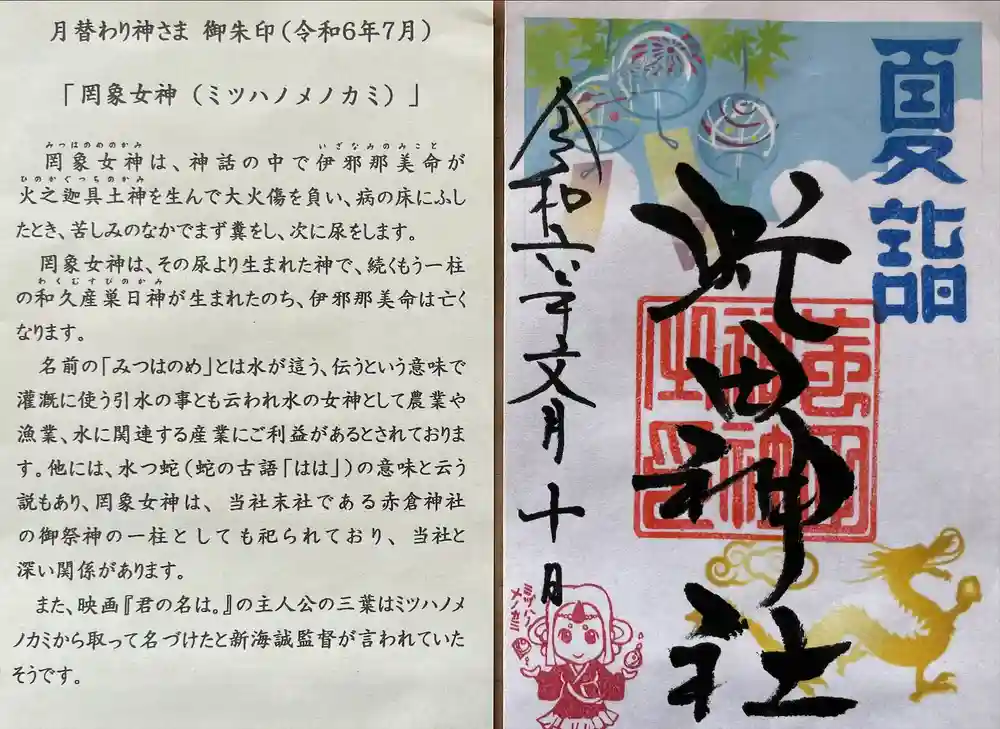 月替わり神さま 御朱印(令和6年7月)
「罔象女神(ミツハノメノカミ)」
みつはのめのかみ いざなみのみこと
罔象女神は、神話の中で伊邪那美命が
ひのかぐつちのかみ
火之迦具土神を生んで大火傷を負い、病の床にふし
たとき、苦しみのなかでまず糞をし、次に尿をします。
罔象女神は、その尿より生まれた神で、続くもう一柱
わくむすびのかみ
の和久産巣日神が生まれたのち、伊邪那美命は亡く
なります。
名前の「みつはのめ」とは水が這う、伝うという意味で
灌漑に使う引水の事とも云われ水の女神として農業や
漁業、水に関連する産業にご利益があるとされておりま
す。他には、水つ蛇(蛇の古語「はは」)の意味と云う
説もあり、罔象女神は、当社末社である赤倉神社
の御祭神の一柱としても祀られており、当社と
深い関係があります。
また、映画『君の名は。』の主人公の三葉はミツハノメ
ノカミから取って名づけたと新海誠監督が言われていた
そうです。
夏詣
虻田神社
令和六年文月十日
ミツハノ
メノカミ